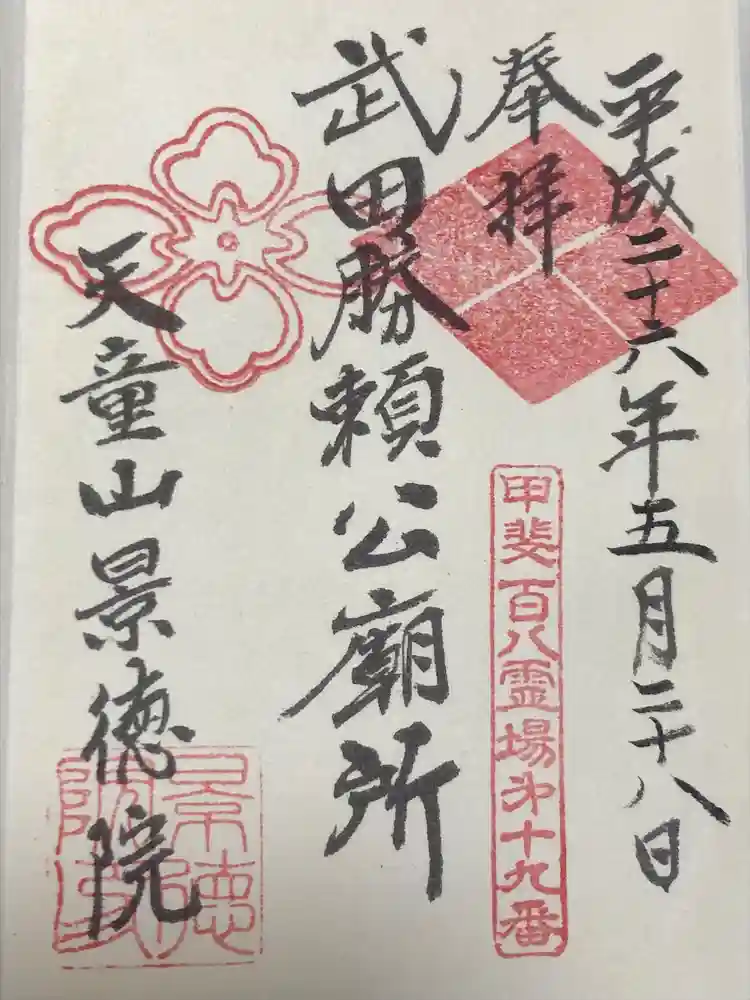 平成二十六年五月二十八日
奉拝
甲斐百八霊場第十九番
武田勝頼公廟所
天童山景徳院
景徳院